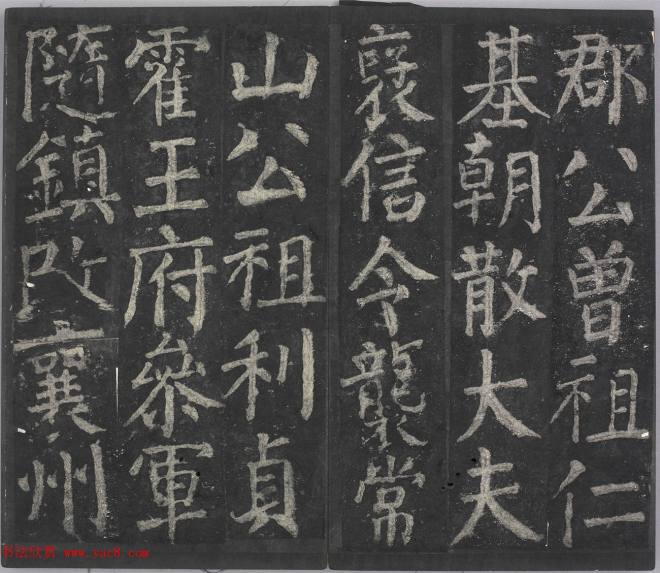 郡公曾祖仁
基朝散大夫
襃信令襲常
山公祖利貞
霍王府叅軍
隨鎮改襄州
书法欣赏 www.yac8.com